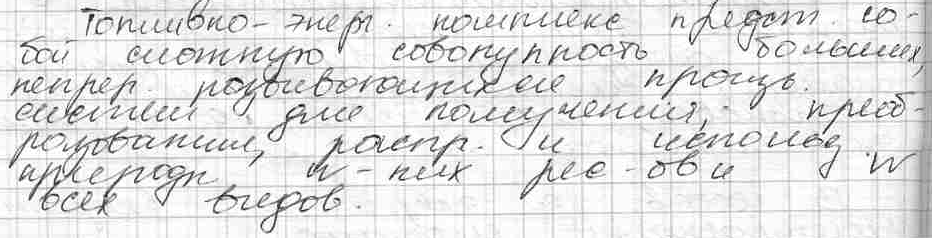 Топливно-энерг. комплекс предст. со-
бой сложную совокупность больших,
непрер. развивающихся произв.
систем для получения, преоб-
разования, распр. и использ.
природн. W-ких рес-ов и W
всех видов.